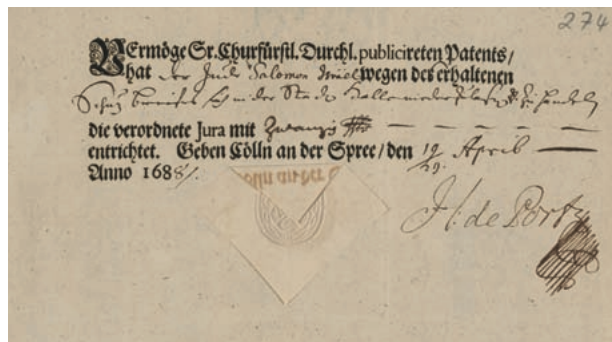 274
VErmöge Sr. Churfürstl. Durchl. publicireten Patents/
hat der Jude Salomon wegen des erhaltenen
Schutz in der Stadt Halle zu handeln
die verordnete Jura mit Zwanzig
entrichtet. Geben Cölln an der Spree/den 19/29. April
Anno 1688.
J: de Portz